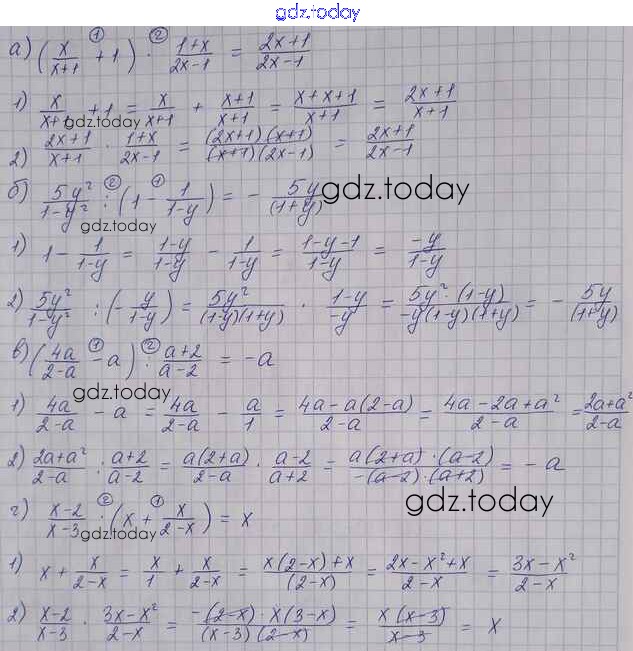 gdz.today
а) (x/(x+1) + 1) · (1+x)/(2x-1) = (2x+1)/(2x-1)
1) x/(x+1) + 1 = x/(x+1) + (x+1)/(x+1) = (x+x+1)/(x+1) = (2x+1)/(x+1)
gdz.today
2) (2x+1)/(x+1) · (1+x)/(2x-1) = ((2x+1)(x+1))/((x+1)(2x-1)) = (2x+1)/(2x-1)
б) 5y²/(1-y²) : (1 - 1/(1-y)) = - 5y/(1+y)
gdz.today
gdz.today
1) 1 - 1/(1-y) = (1-y)/(1-y) - 1/(1-y) = (1-y-1)/(1-y) = -y/(1-y)
2) 5y²/(1-y²) : (- y/(1-y)) = 5y²/((1-y)(1+y)) · (1-y)/(-y) = (5y² · (1-y))/(-y(1-y)(1+y)) = - 5y/(1+y)
в) (4a/(2-a) - a) : (a+2)/(a-2) = -a
gdz.today
1) 4a/(2-a) - a = 4a/(2-a) - a/1 = (4a-a(2-a))/(2-a) = (4a-2a+a²)/(2-a) = (2a+a²)/(2-a)
2) (2a+a²)/(2-a) : (a+2)/(a-2) = a(2+a)/(2-a) · (a-2)/(a+2) = (a(2+a)·(a-2))/(-(a-2)·(a+2)) = -a
gdz.today
г) (x-2)/(x-3) : (x + x/(2-x)) = x
gdz.today
1) x + x/(2-x) = x/1 + x/(2-x) = (x(2-x)+x)/(2-x) = (2x-x²+x)/(2-x) = (3x-x²)/(2-x)
2) (x-2)/(x-3) · (3x-x²)/(2-x) = (-(2-x)·x(3-x))/((x-3)(2-x)) = x(x-3)/(x-3) = x